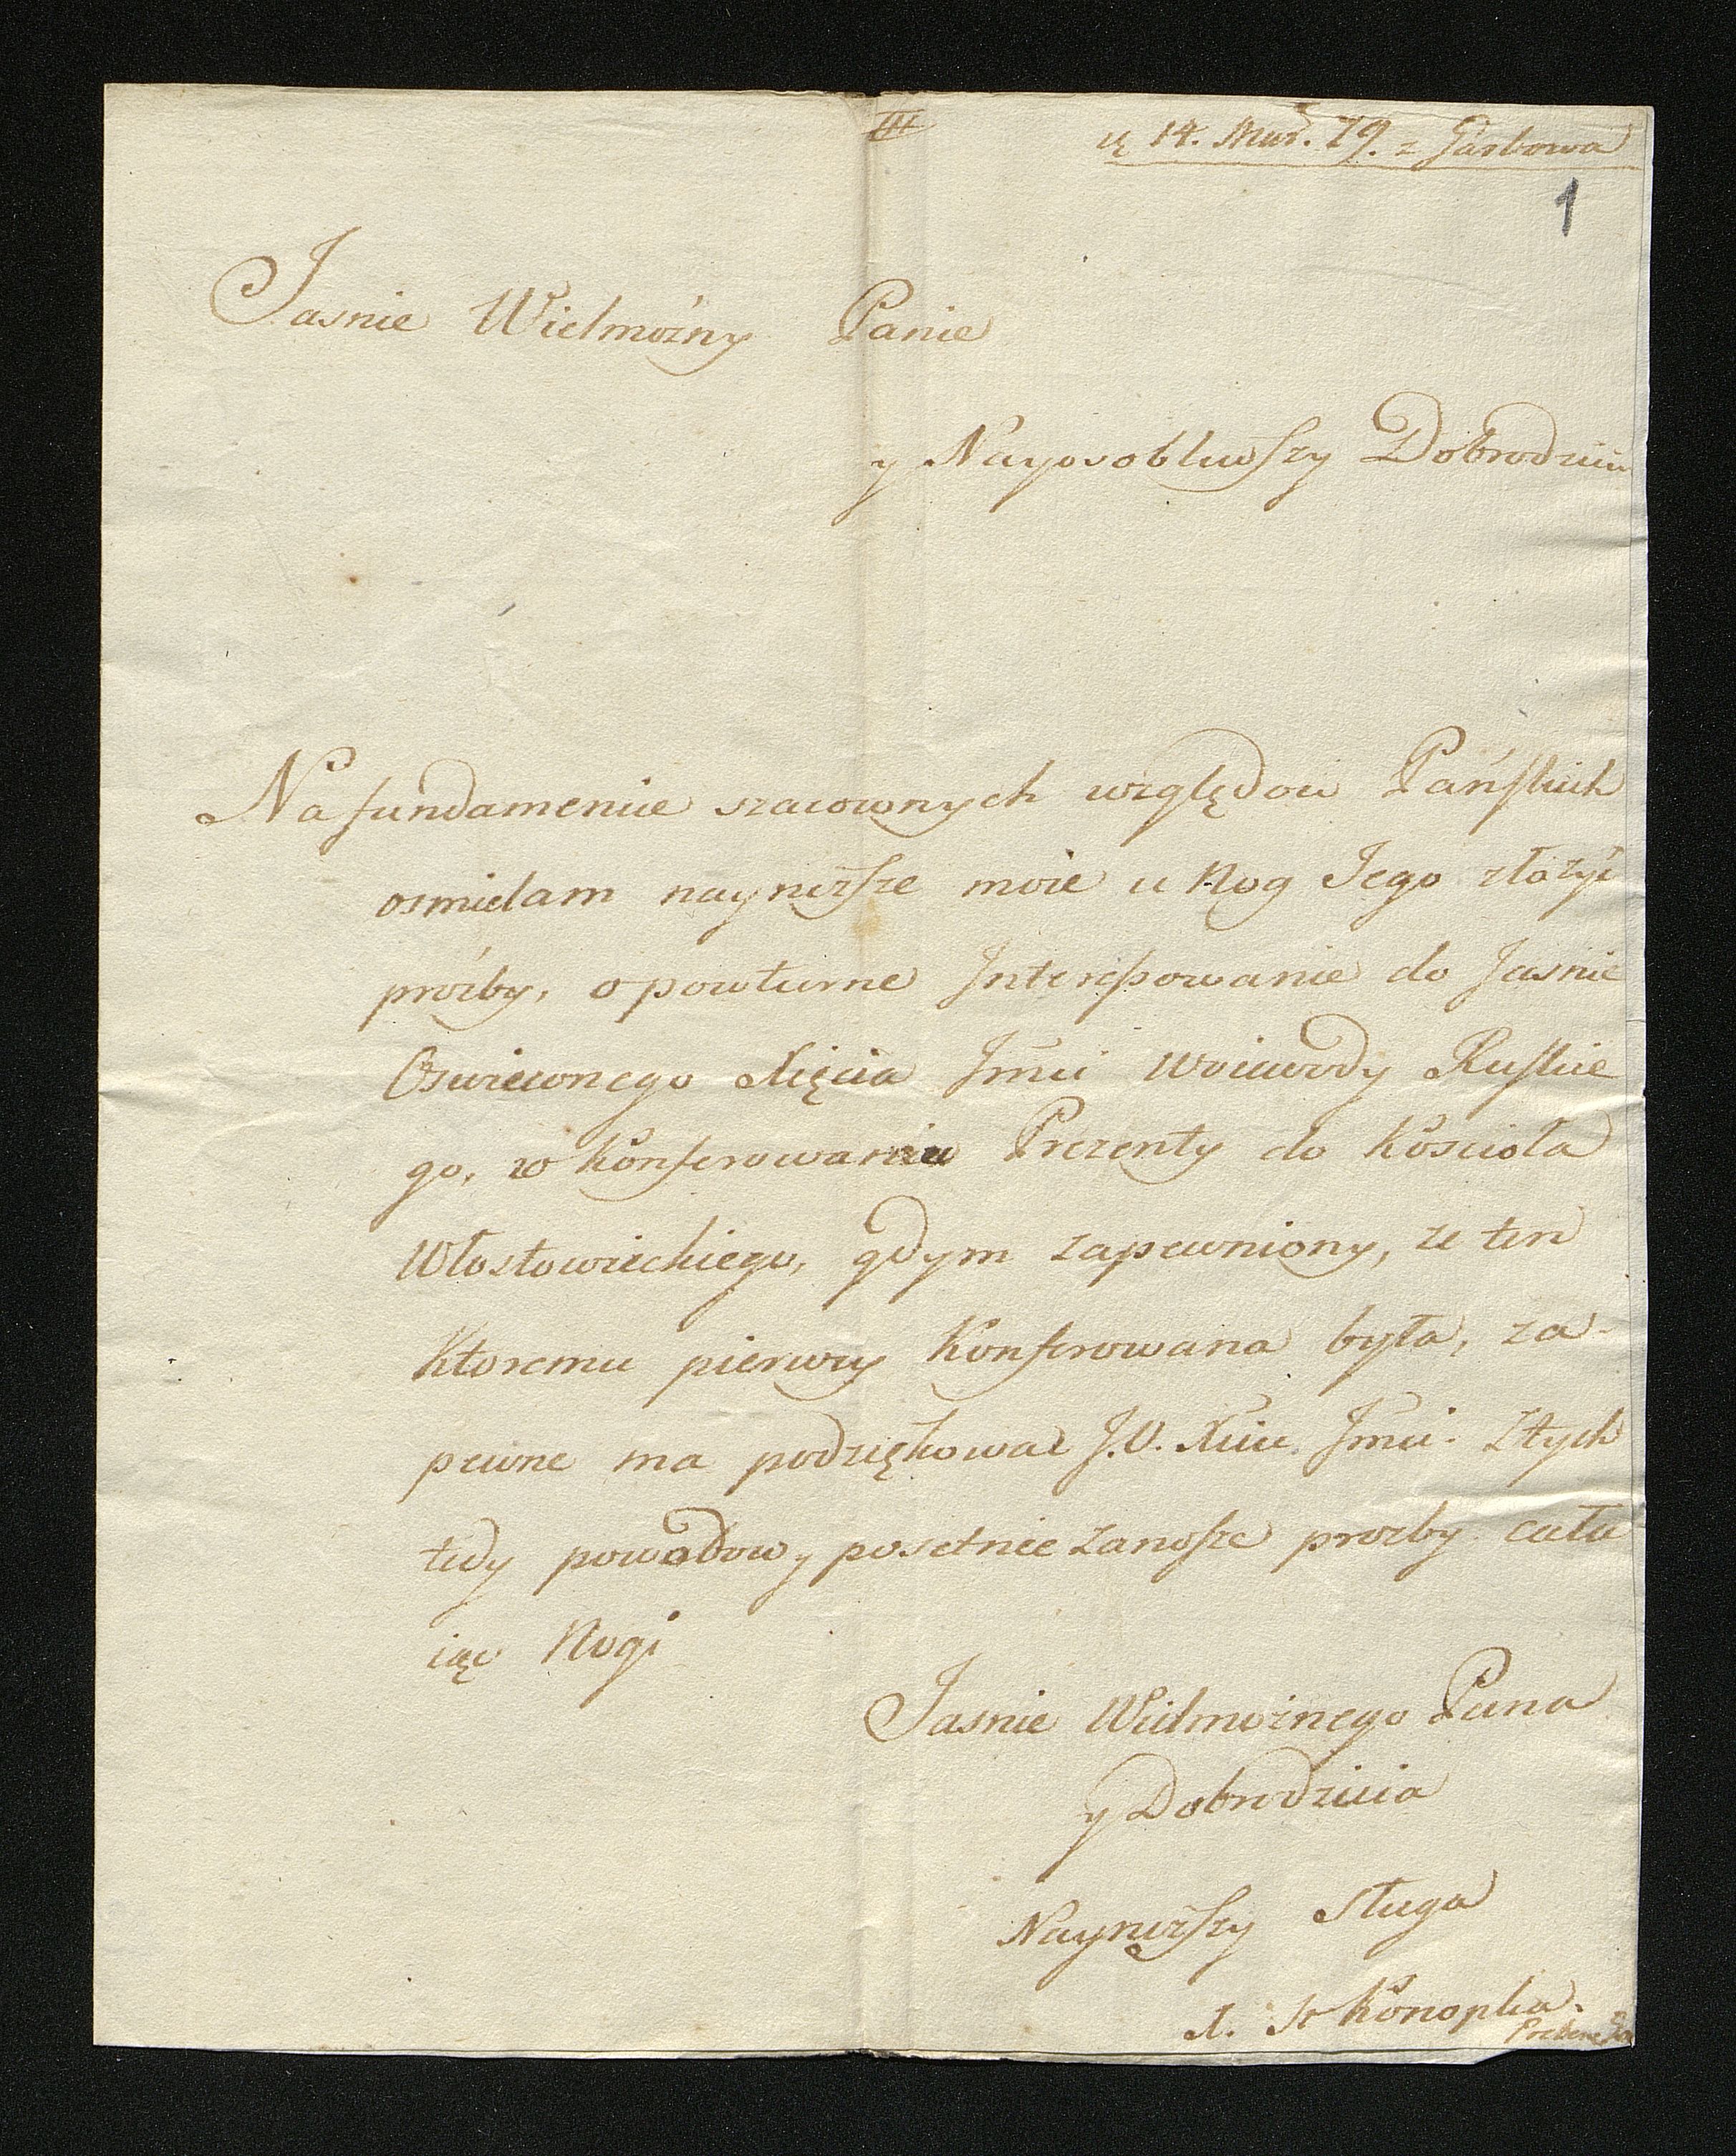 III
14. Mar. 79. z Garbowa
1
Jasnie Wielmożny Panie
y Nayosobliwszy Dobrodzieiu
Na fundamencie szacownych względow Pańskich
osmielam nayniższe moie u Nog Jego złożyć
proźby, o powturne Interessowanie do Jasnie
Oswieconego Xięcia Jmci Woiewody Ruskie
go, w konferowaniu Prezenty do Koscioła
Włostowieckiego, gdym zapewniony, ze ten
Ktoremu pierwey konferowana była, za-
pewne ma podziękować J.O. Xciu Jmci. Ztych
tedy powodow, y posetnie zanosze prozby cału
iąc Nogi
Jasnie Wielmożnego Pana
y Dobrodzieia
Nayniższy Sługa
X. St Konopka.